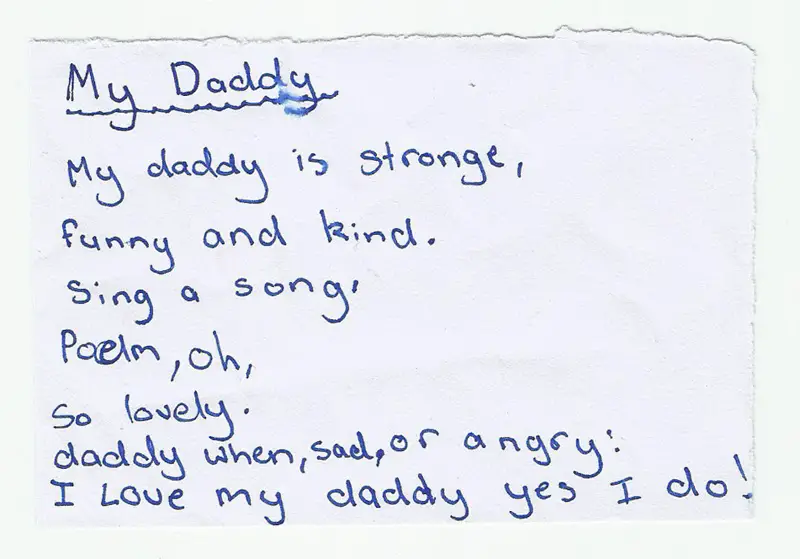 My Daddy
My daddy is stronge,
funny and kind.
Sing a song,
Poelm, oh,
So lovely.
daddy when, sad, or angry:
I Love my daddy yes I do!